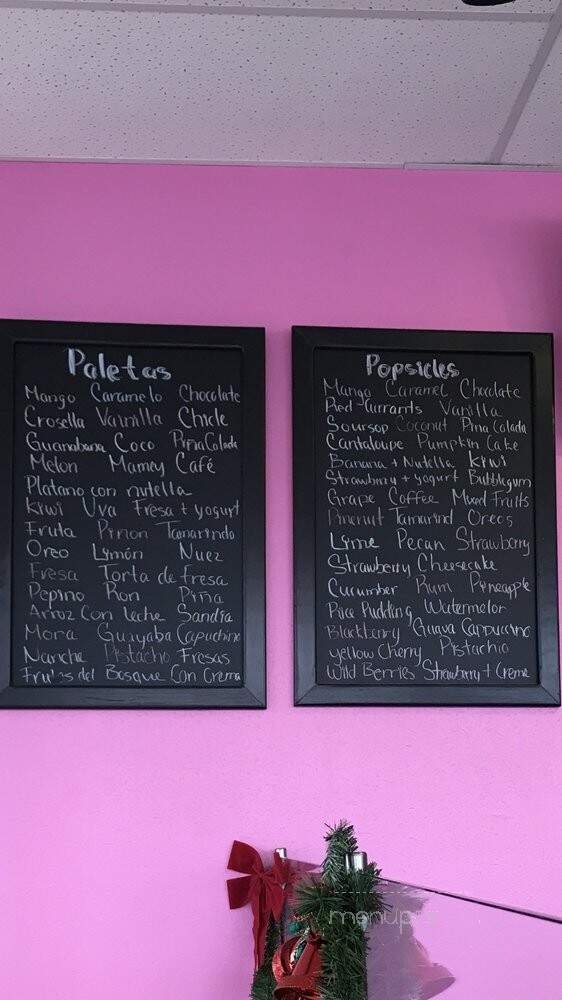 Paletas
Mango Caramelo Chocolate
Crosella Vainilla Chicle
Guanabana Coco Piña Colada
Melon Mamey Café
Platano con nutella
Kiwi Uva Fresa + yogurt
Fruta Pinon Tamarindo
Oreo Lymón Nuez
Fresa Torta de fresa
Pepino Ron Piña
Arroz Con leche Sandía
Mora Guayaba Capuchino
Nanche Pistacho Fresas
Frutas del Bosque Con Crema
Popsicles
Mango Caramel Chocolate
Red Currants Vanilla
Soursop Coconut Pina Colada
Cantaloupe Pumpkin Cake
Banana + Nutella Kiwi
Strawberry + yogurt Bubblegum
Grape Coffee Mixed Fruits
Pinenut Tamarind Oreos
Lyme Pecan Strawberry
Strawberry Cheesecake
Cucumber Rum Pineapple
Rice Pudding Watermelor
Blackberry Guava Cappuccino
yellow Cherry Pistachio
Wild Berries Strawberry + Creme